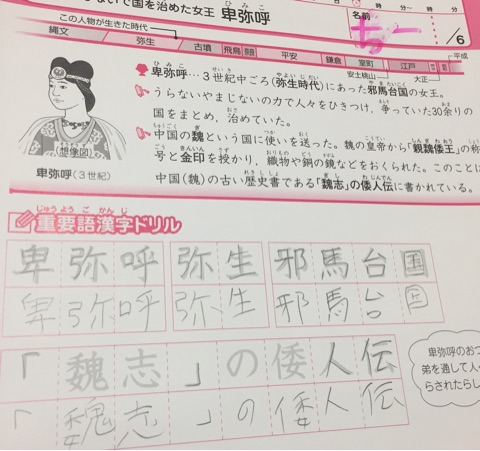 いで国を治めた女王 卑弥呼
ひみこ
時 分〜 時 分
名前
ちー
/6
この人物が生きた時代
縄文 弥生 古墳 飛鳥 奈良 平安 鎌倉 室町 安土桃山 江戸 大正 平成
卑弥呼…3世紀中ごろ(弥生時代)にあった邪馬台国の女王。
うらないやまじないの力で人々をひきつけ，争っていた30余りの
国をまとめ，治めていた。
中国の魏という国に使いを送った。魏の皇帝から「親魏倭王」の称
号と金印を授かり，織物や銅の鏡などをおくられた。このことは
中国(魏)の古い歴史書である「魏志」の倭人伝に書かれている。
(想像図)
卑弥呼(3世紀)
じゅうようごかんじ
重要語漢字ドリル
卑弥呼 弥生 邪馬台国
卑弥呼 弥生 邪馬台国
「魏志」の倭人伝
「魏志」の倭人伝
卑弥呼のおつ
弟を通して人
らされたらし